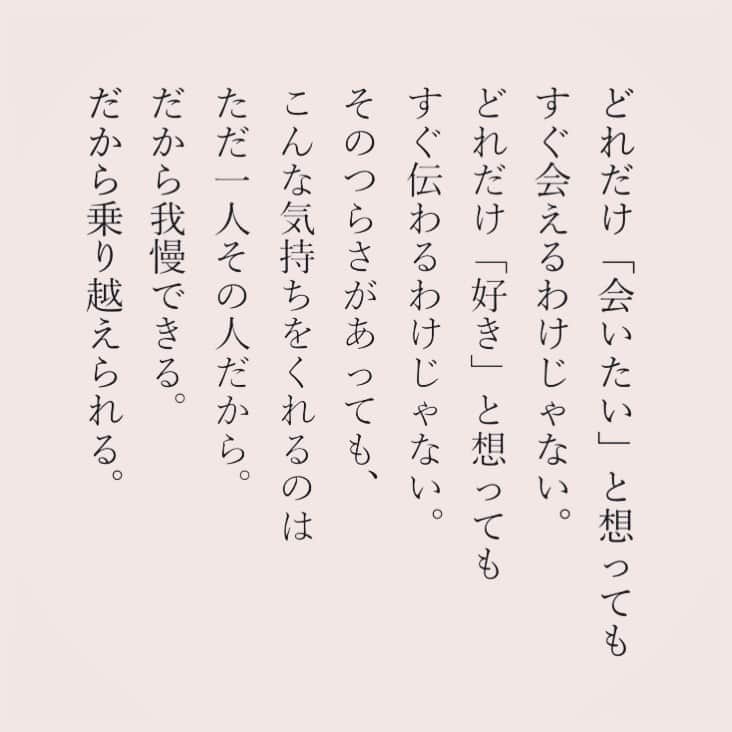 どれだけ「会いたい」と想っても
すぐ会えるわけじゃない。
どれだけ「好き」と想っても
すぐ伝わるわけじゃない。
そのつらさがあっても、
こんな気持ちをくれるのは
ただ一人その人だから。
だから我慢できる。
だから乗り越えられる。